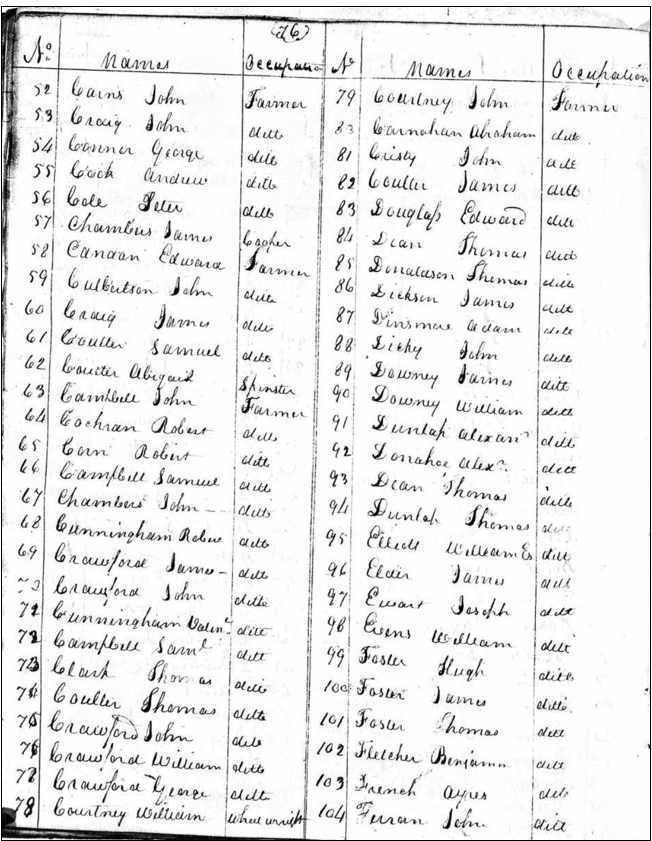 (76)
No. Names Occupation
52 Carns John Farmer
53 Craig John ditto
54 Connor George ditto
55 Cook Andrew ditto
56 Cole Peter ditto
57 Chambers James Cooper
58 Candan Edward Farmer
59 Culbertson John ditto
60 Craig James ditto
61 Coulter Samuel ditto
62 Coulter Abigail Spinster
63 Campbell John Farmer
64 Cochran Robert ditto
65 Corn Robert ditto
66 Campbell Samuel ditto
67 Chambers John ditto
68 Cunningham Robert ditto
69 Crawford James ditto
70 Crawford John ditto
71 Cunningham ditto
72 Campbell Saml ditto
73 Clark Thomas ditto
74 Coulter Thomas ditto
75 Crawford John ditto
76 Crawford William ditto
77 Crawford George ditto
78 Courtney William Wheelwright
No Names Occupation
79 Courtney John Farmer
83 Carnahan Abraham ditto
81 Cristy John ditto
82 Coulter James ditto
83 Douglass Edward ditt
84 Dean Thomas ditto
85 Donaldson Thomas ditto
86 Dickson James ditt
87 Dinsmore Adam ditto
88 Dicky John ditto
89 Downey James ditt
90 Downey William ditto
91 Dunlap Alexanr ditto
92 Donahoe Alexr. ditt
93 Dean Thomas ditto
94 Dunlap Thomas ditt
95 Elliott William Es ditt
96 Elder James ditt
97 Ewart Joseph ditt
98 Evens William ditt
99 Foster Hugh ditto
100 Foster James ditto
101 Foster Thomas ditt
102 Fletcher Benjamin ditt
103 French Ayres ditt
104 Ferran John ditt